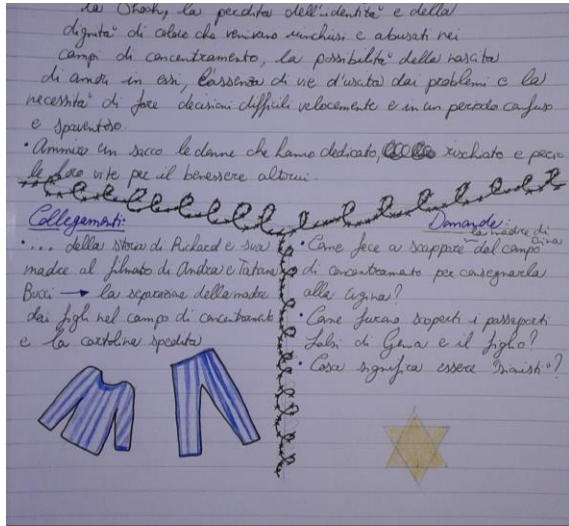 la Shoah, la perdita dell'identità e della
dignità di coloro che venivano rinchiusi e abusati nei
campi di concentramento, la possibilità della nascita
di amori in essi, l'assenza di vie d'uscita dai problemi e la
necessità di fare decisioni difficili velocemente e in un periodo confuso
e spaventoso.
• Ammiro un sacco le donne che hanno dedicato, rischiato e
le loro vite per il benessere altrui.
Collegamenti:
• ... della storia di Richard e sua
madre al filmato di Andra e Tatiana
Bucci → la separazione della madre
dai figli nel campo di concentramento
e la cartolina spedita
Domande:
la madre di
• Come fece a scappare dal campo
di concentramento per consegnarla
alla cugina?
• Come furono scoperti i passaporti
falsi di e il figlio?
• Cosa significa essere "sionisti"?